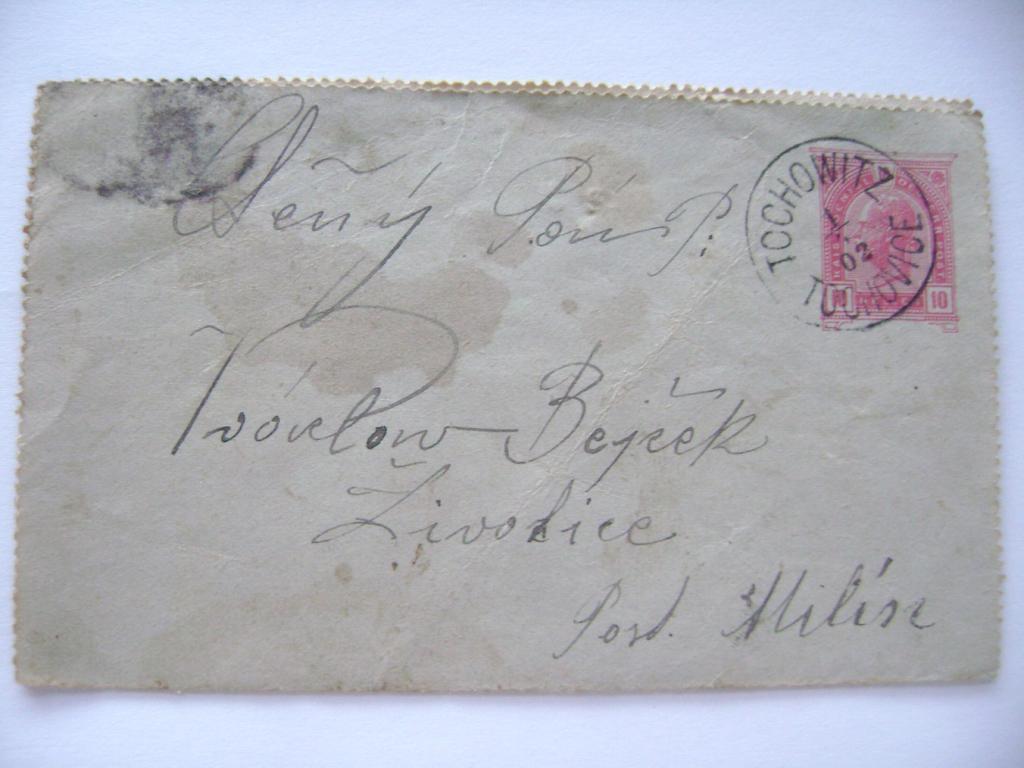 Ctěný Pán P.
Václav Bejček
Životice
Post. Milín
TOCHOWITZ
1
02
TOCHOVICE
10 10